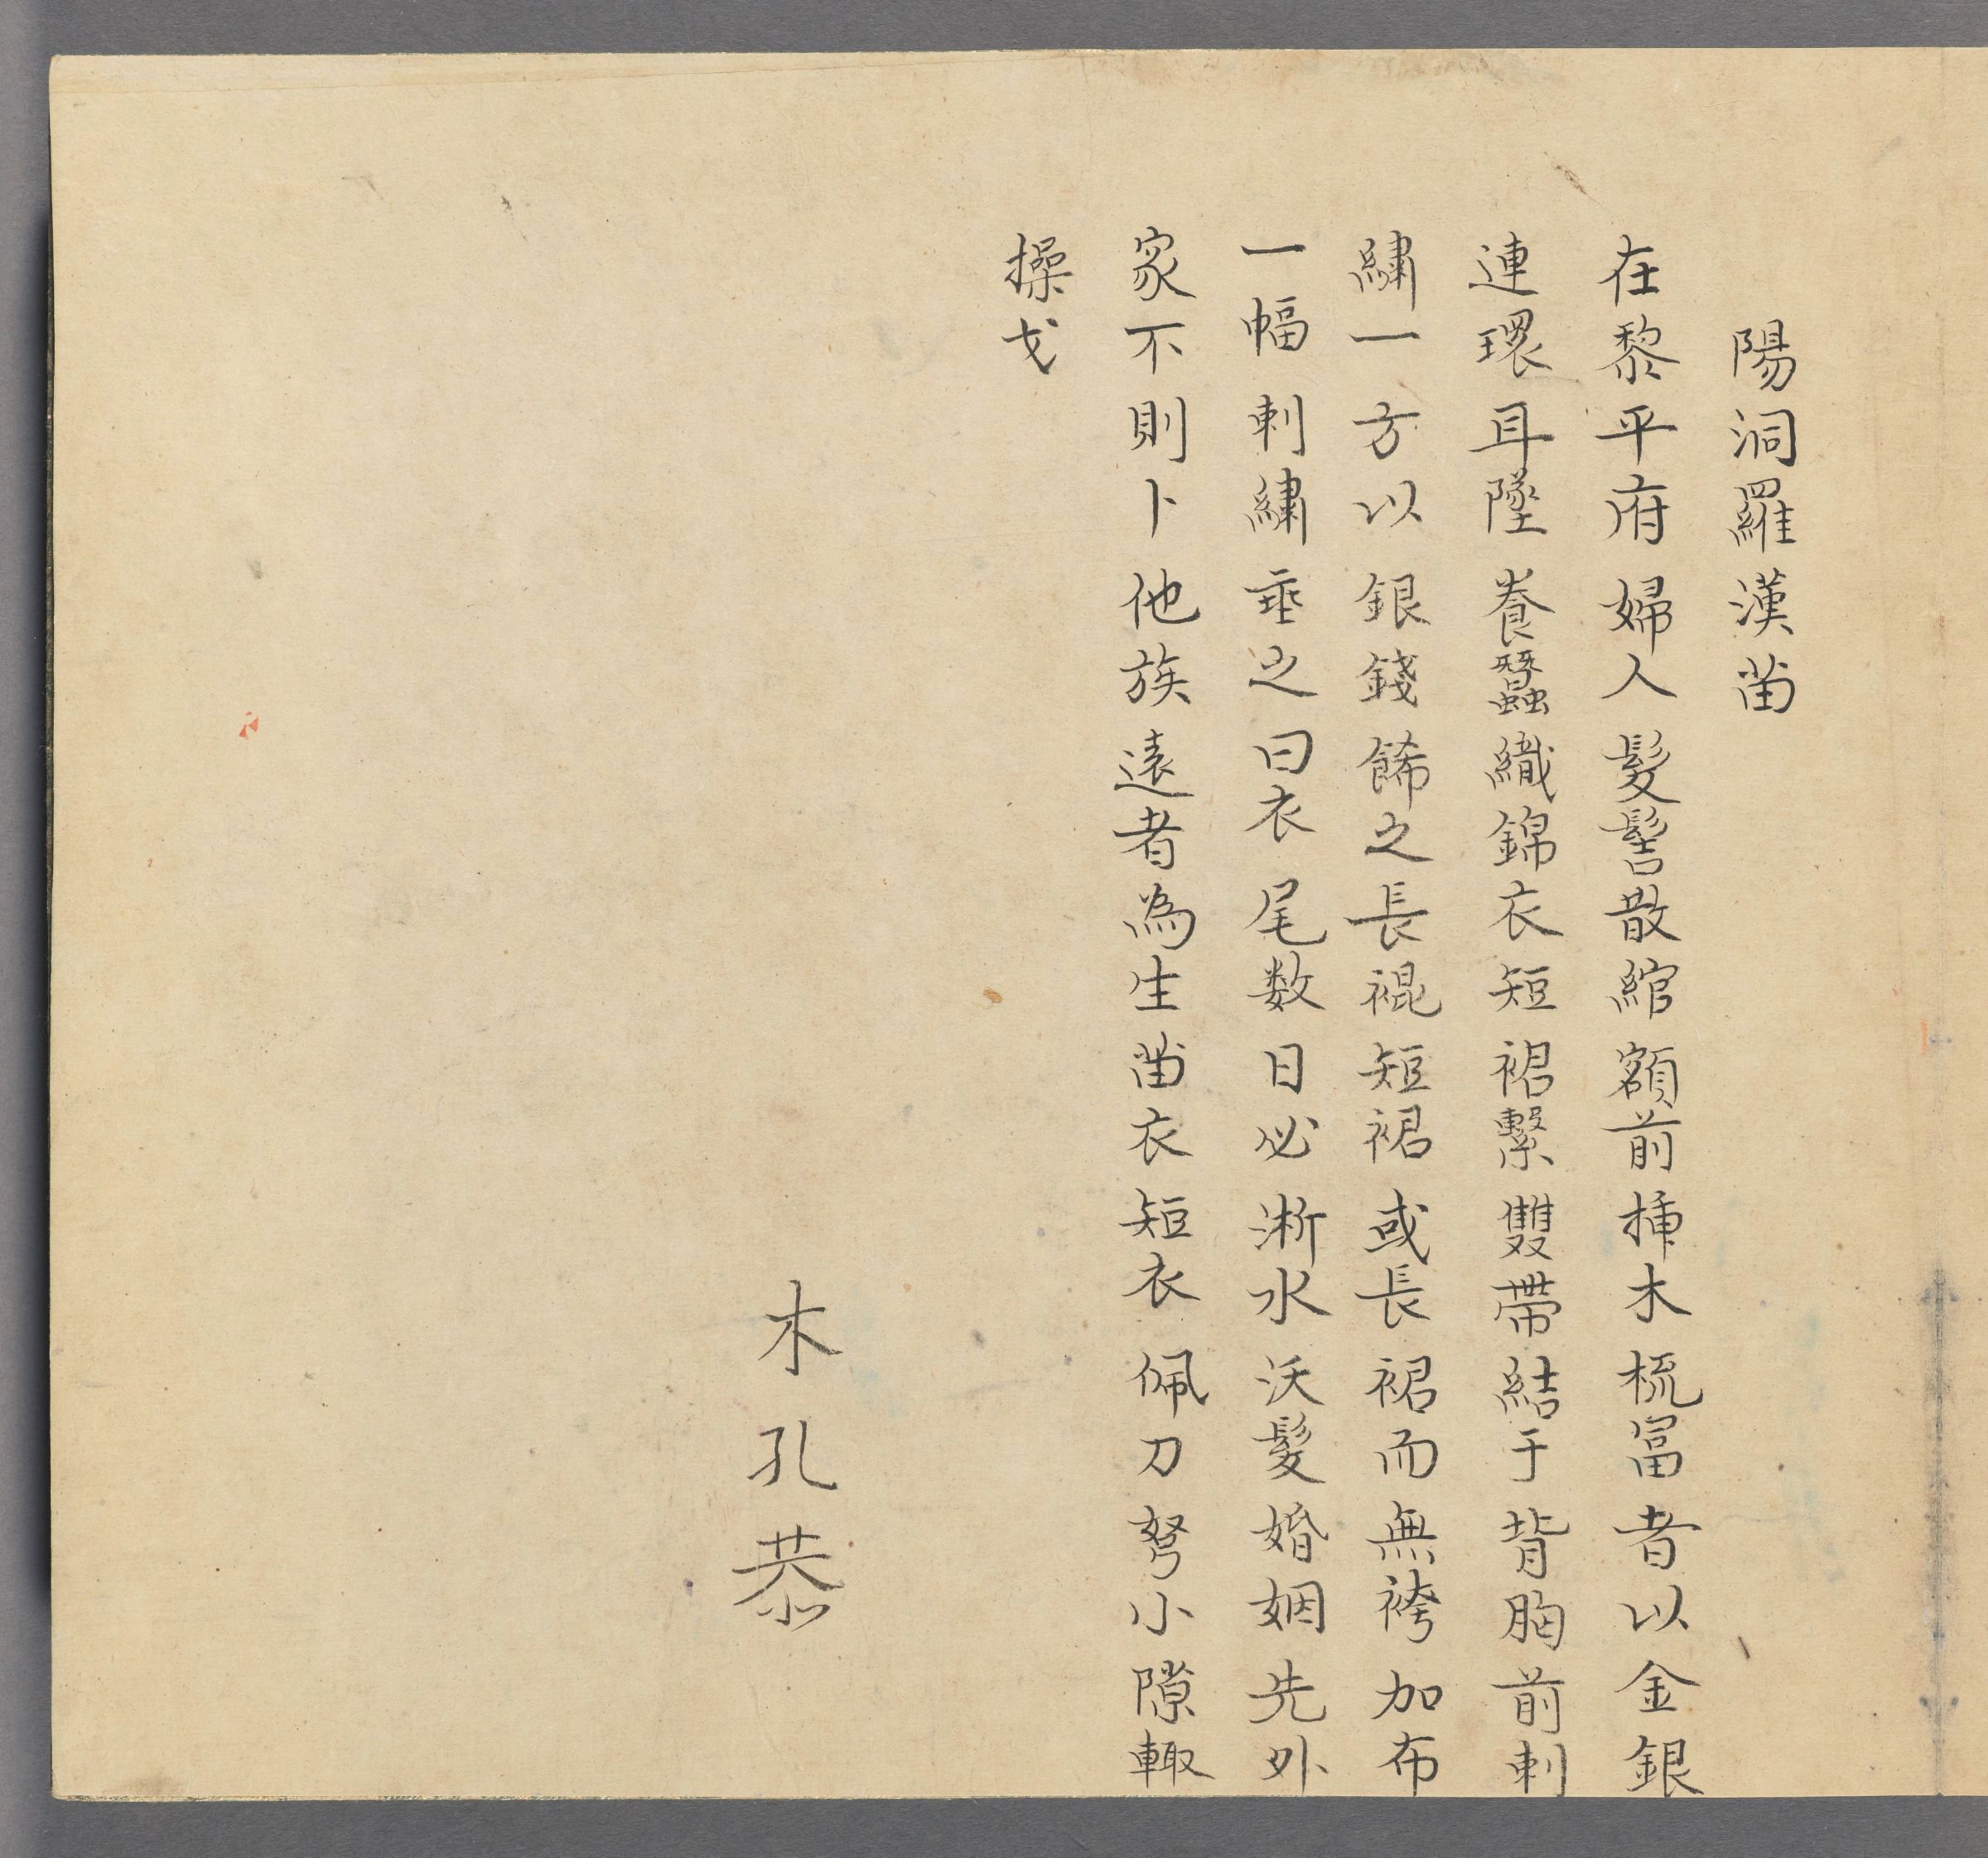 陽洞羅漢苗
在黎平府婦人髮髻散綰額前揷木梳富者以金銀
連環耳墜養蠶織錦衣短裙繫雙帶結于背胸前刺
繡一方以銀錢餙之長裩短裙或長裙而無袴加布
一幅刺繡垂之曰衣尾数日必淅水沃髮婚姻先外
家不則卜他族遠者為生苗衣短衣佩刀弩小隙輙
操戈
木孔恭